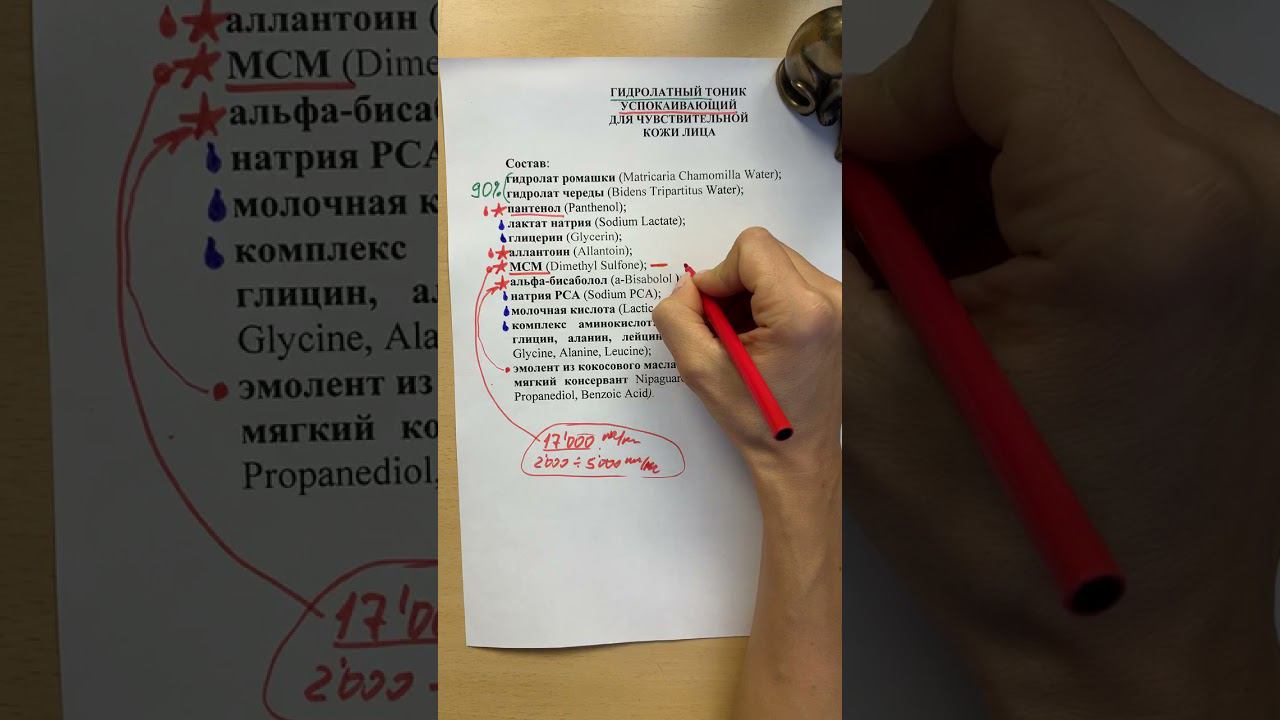 ГИДРОЛАТНЫЙ ТОНИК
УСПОКАИВАЮЩИЙ
ДЛЯ ЧУВСТВИТЕЛЬНОЙ
КОЖИ ЛИЦА
Состав:
гидролат ромашки (Matricaria Chamomilla Water);
90% гидролат череды (Bidens Tripartitus Water);
пантенол (Panthenol);
лактат натрия (Sodium Lactate);
глицерин (Glycerin);
аллантоин (Allantoin);
МСМ (Dimethyl Sulfone);
альфа-бисаболол (a-Bisabolol)
натрия PCA (Sodium PCA);
молочная кислота (Lactic
комплекс аминокислот
глицин, аланин, лейцин
Glycine, Alanine, Leucine);
эмолент из кокосового масла
мягкий консервант Nipaguard
Propanediol, Benzoic Acid).
17'000
2'000 ÷ 5'000